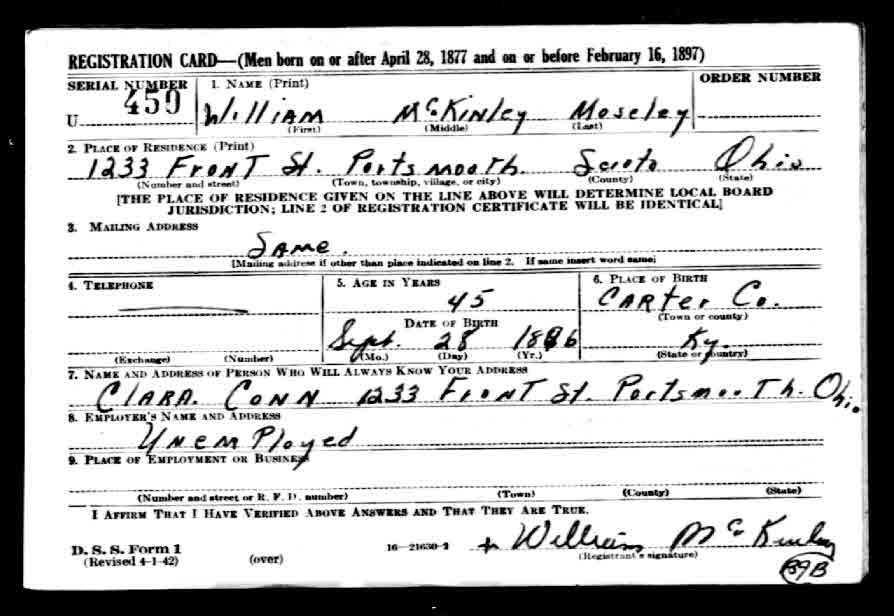 REGISTRATION CARD—(Men born on or after April 28, 1877 and on or before February 16, 1897)
SERIAL NUMBER 1. NAME (Print) ORDER NUMBER
U 450 William McKinley Moseley
(First) (Middle) (Last)
2. PLACE OF RESIDENCE (Print)
1233 Front St. Portsmouth Scioto Ohio
(Number and street) (Town, township, village, or city) (County) (State)
[THE PLACE OF RESIDENCE GIVEN ON THE LINE ABOVE WILL DETERMINE LOCAL BOARD
JURISDICTION; LINE 2 OF REGISTRATION CERTIFICATE WILL BE IDENTICAL]
3. MAILING ADDRESS
Same.
[Mailing address if other than place indicated on line 2. If same insert word same]
4. TELEPHONE 5. AGE IN YEARS 6. PLACE OF BIRTH
45 Carter Co.
(Town or county)
DATE OF BIRTH
Sept. 28 Ky.
(Exchange) (Number) (Mo.) (Day) (Yr.) (State or country)
7. NAME AND ADDRESS OF PERSON WHO WILL ALWAYS KNOW YOUR ADDRESS
Clara. Conn 1233 Front St. Portsmouth. Ohio
8. EMPLOYER'S NAME AND ADDRESS
Unemployed
9. PLACE OF EMPLOYMENT OR BUSINESS
(Number and street or R. F. D. number) (Town) (County) (State)
I AFFIRM THAT I HAVE VERIFIED ABOVE ANSWERS AND THAT THEY ARE TRUE.
D. S. S. Form 1
(Revised 4-1-42) (over) 16—21630-2 William McKinley
(Registrant's signature)
89B